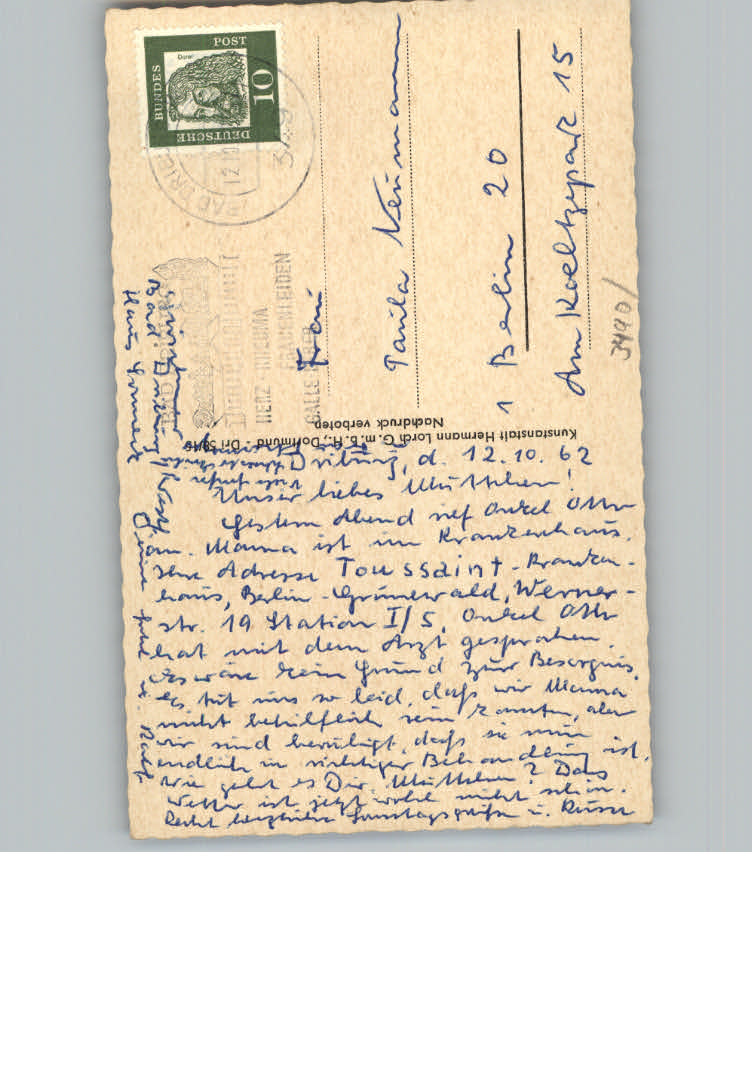 DEUTSCHE
BUNDES
POST
10
Dürer
12.10
3489
HERZ RHEUMA
FRAUENLEIDEN
GALLE LEBER
Frau
Paula Neumann
1 Berlin 20
Am Koeltzepark 15
3490/
Kunstanstalt Hermann Lorch G.m.b.H., Dortmund · Dri 58/10
Nachdruck verboten
Bad Driburg
Driburg, d. 12.10.62
Unser liebes Muttchen!
Gestern Abend rief Onkel Otto
an. Mama ist im Krankenhaus.
Ihre Adresse Toussaint-Kranken-
haus, Berlin-Grunewald, Werner-
str. 19 Station I/5. Onkel Otto
hat mit dem Arzt gesprochen.
Es wäre kein Grund zur Besorgnis.
Es tut uns so leid, daß wir Mama
nicht behilflich sein konnten, aber
wir sind beruhigt, daß sie nun
endlich in richtiger Behandlung ist.
Wie geht es Dir, Muttchen? Das
Wetter ist jetzt wohl nicht schön.
Recht herzliche Sonntagsgrüße u. Küsse